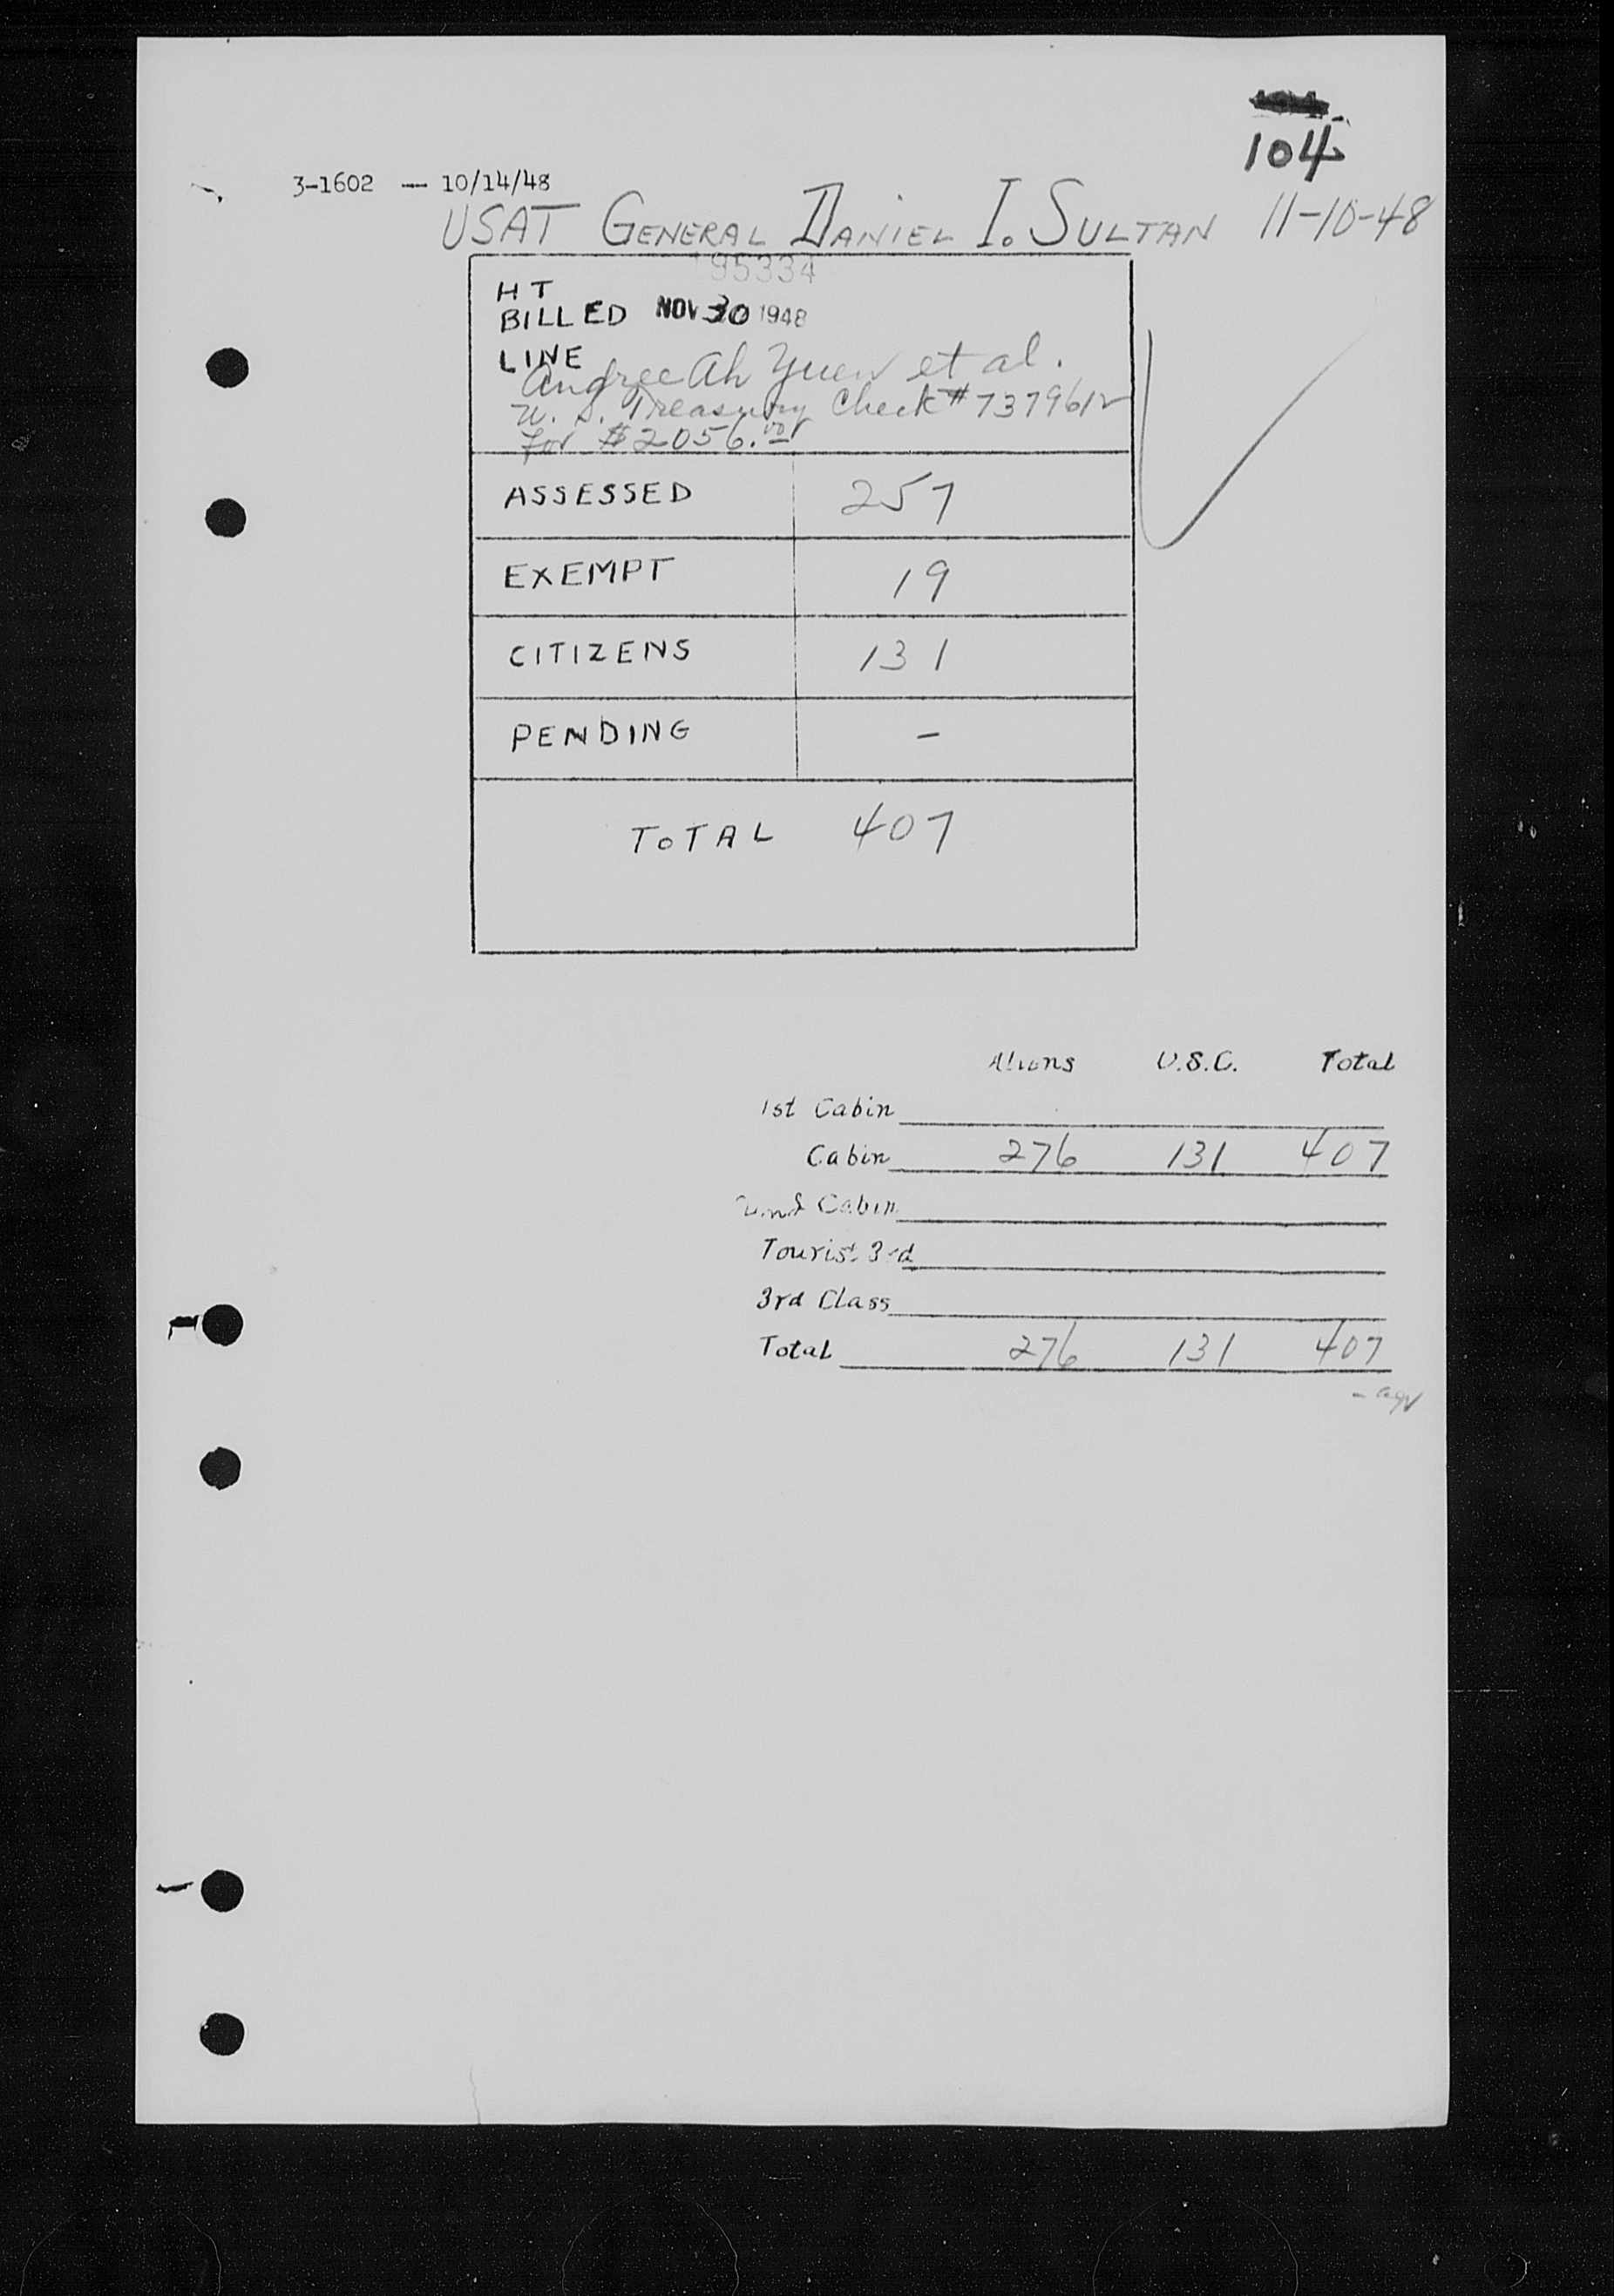 104
3-1602 — 10/14/48
USAT GENERAL DANIEL I. SULTAN 11-10-48
95334
HT
BILLED NOV 30 1948
LINE
Andree Ah Yuen et al.
U. S. Treasury Check # 7379612
for $2056.00
ASSESSED 257
EXEMPT 19
CITIZENS 131
PENDING –
TOTAL 407
Aliens U.S.C. Total
1st Cabin
Cabin 276 131 407
Cabin
Tourist 3rd
3rd Class
Total 276 131 407